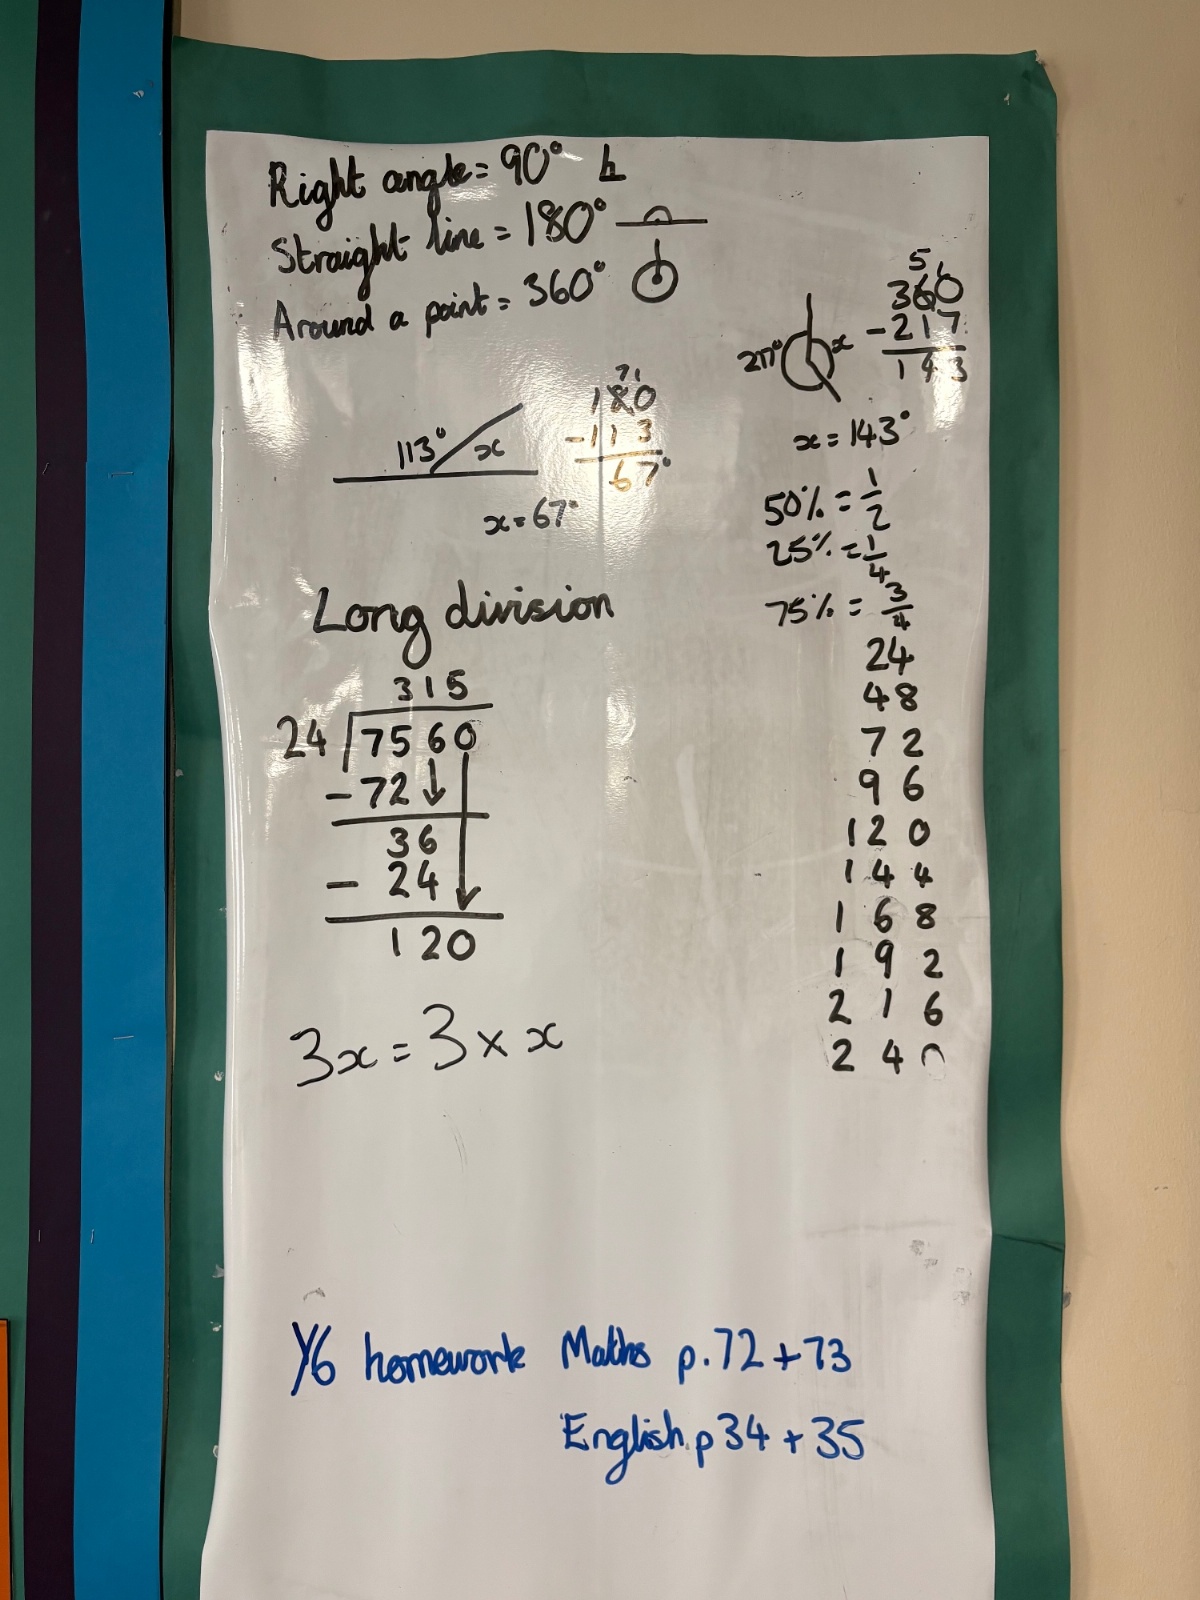 Right angle = 90°
Straight line = 180°
Around a point = 360°
113° x
7 1
180
-113
67°
x = 67°
217° x
5 1
360
-217
143
x = 143°
50% = 1/2
25% = 1/4
75% = 3/4
Long division
315
24 7560
-72
36
- 24
120
3x = 3 × x
24
48
72
96
120
144
168
192
216
240
Y6 homework Maths p.72 + 73
English p 34 + 35